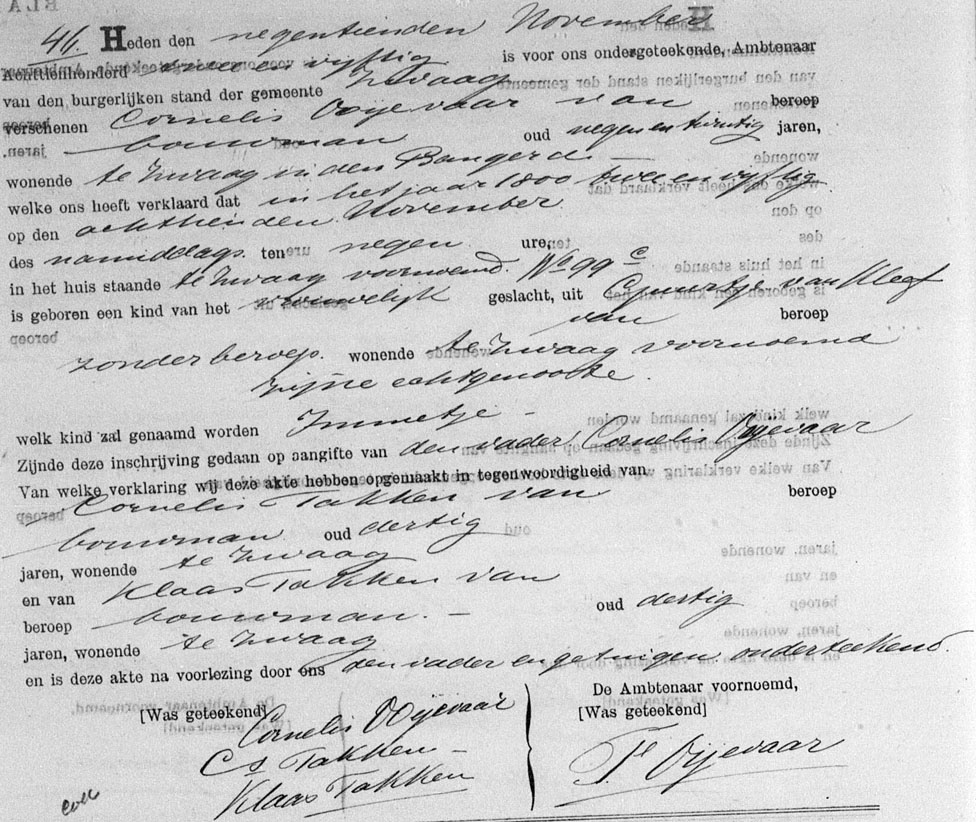 46. Heden den negentienden November
Achttienhonderd twee en vyftig is voor ons ondergeteekende, Ambtenaar
van den burgerlijken stand der gemeente Zwaag
verschenen Cornelis Ooijevaar van beroep
bouwman oud negen en twintig jaren,
wonende te Zwaag in den Bangerd
welke ons heeft verklaard dat in het jaar 1800 twee en vyftig
op den achttienden November
des namiddags ten negen ure
in het huis staande te Zwaag voornoemd. No 99 c
is geboren een kind van het vrouwelijk geslacht, uit van Kleef
van beroep
zonder beroep. wonende te Zwaag voornoemd
zijne echtgenoote.
welk kind zal genaamd worden Immetje
Zijnde deze inschrijving gedaan op aangifte van den vader, Cornelis Ooijevaar
Van welke verklaring wij deze akte hebben opgemaakt in tegenwoordigheid van
Cornelis Takken van beroep
bouwman oud dertig
jaren, wonende te Zwaag
en van Klaas Takken van
beroep bouwman. oud dertig
jaren, wonende te Zwaag
en is deze akte na voorlezing door ons den vader en getuigen onderteekend.
De Ambtenaar voornoemd,
[Was geteekend] [Was geteekend]
Cornelis OOijevaar
Cs Takken
Klaas Takken
Pt Ooijevaar